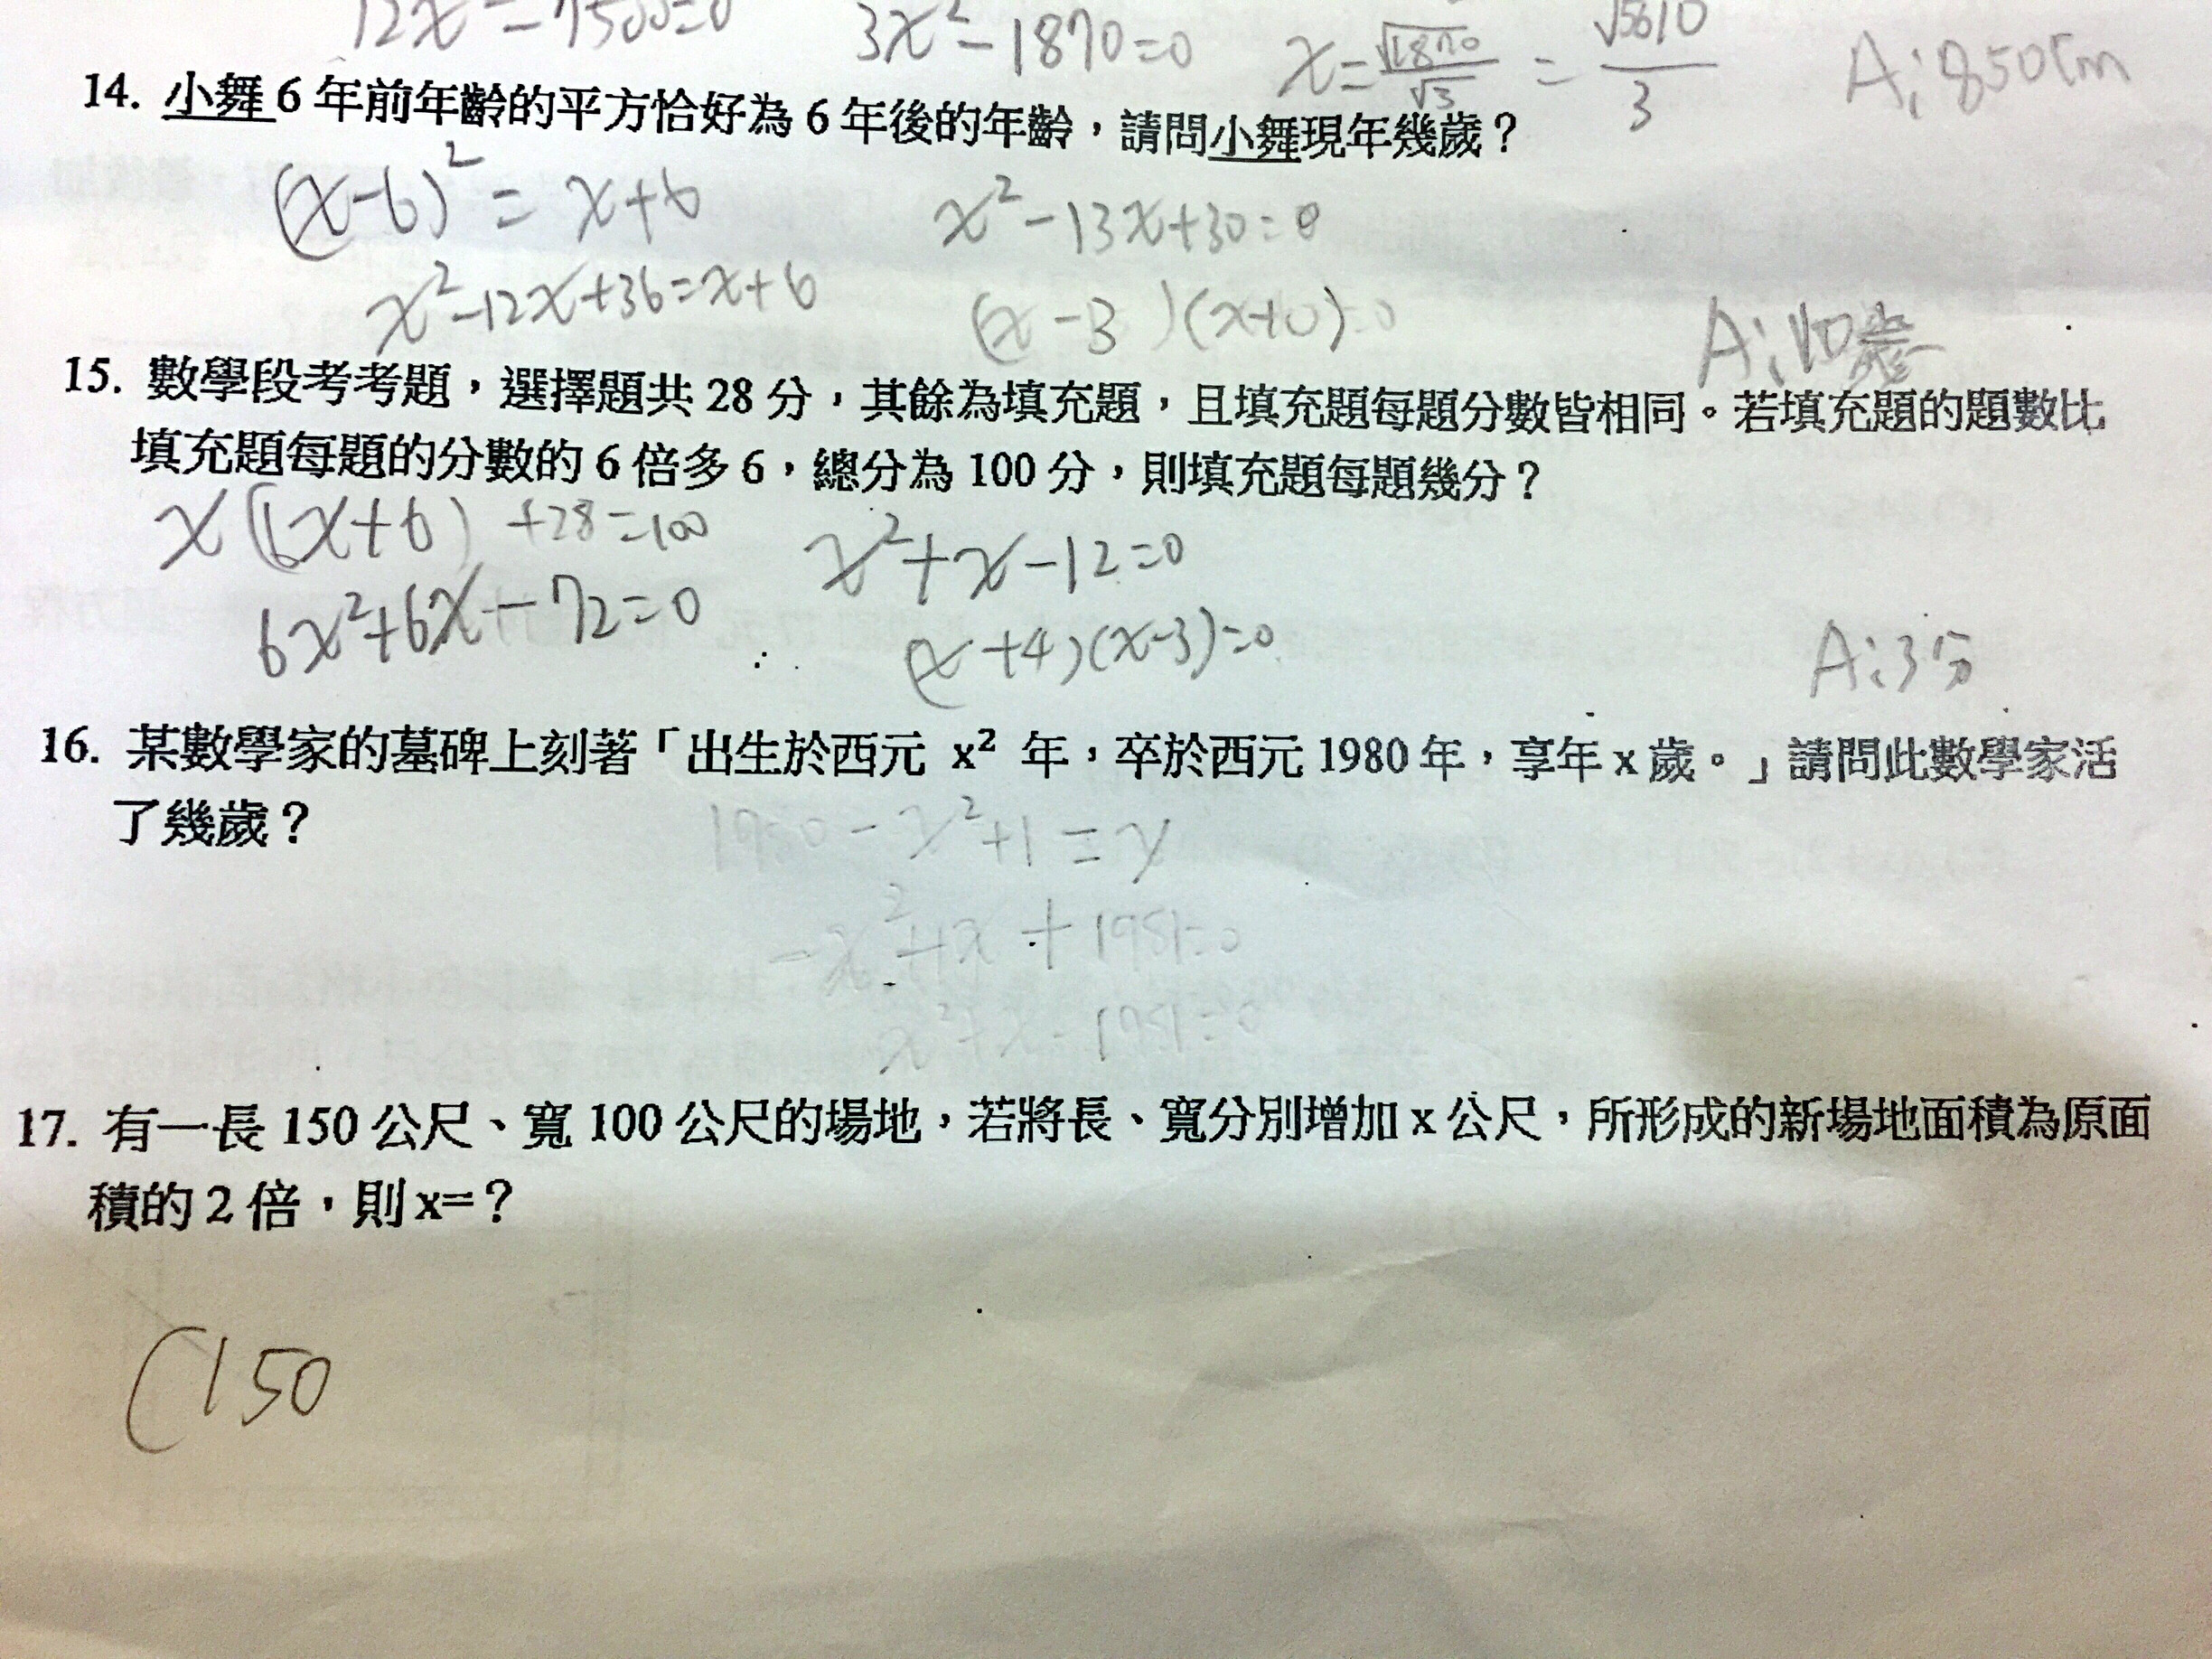 12x²-7500=0 3x²-1870=0 x=√1870/√3 = √5610/3 A:850cm
14. 小舞6年前年齡的平方恰好為6年後的年齡，請問小舞現年幾歲？
(x-6)² = x+6 x²-13x+30=0
x²-12x+36=x+6 (x-3)(x+10)=0 A:10歲
15. 數學段考考題，選擇題共28分，其餘為填充題，且填充題每題分數皆相同。若填充題的題數比
填充題每題的分數的6倍多6，總分為100分，則填充題每題幾分？
x(6x+6)+28=100 x²+x-12=0
6x²+6x-72=0 (x+4)(x-3)=0 A:3分
16. 某數學家的墓碑上刻著「出生於西元 x² 年，卒於西元1980年，享年x歲。」請問此數學家活
了幾歲？
1980-x²+1=x
-x²+x+1981=0
x²+x-1981=0
17. 有一長150公尺、寬100公尺的場地，若將長、寬分別增加x公尺，所形成的新場地面積為原面
積的2倍，則x=？
(150